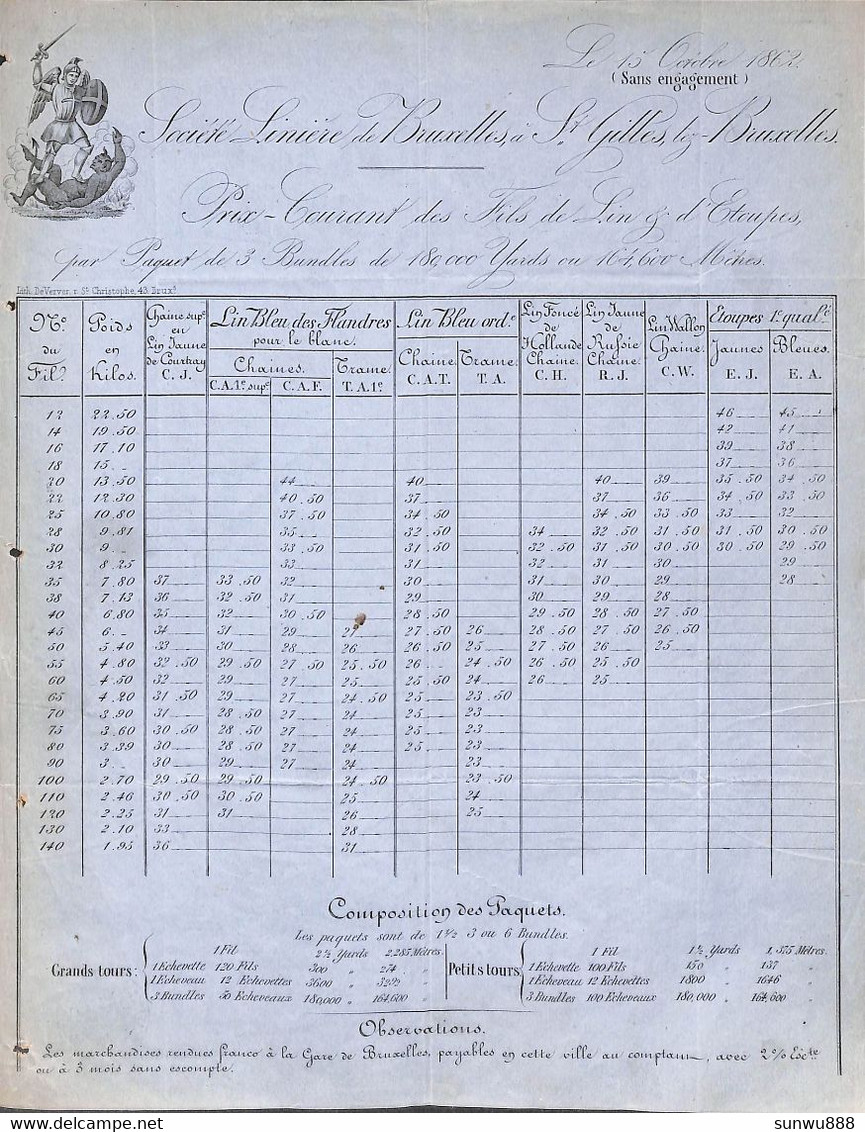 Le 15 Octobre 1862.
(Sans engagement)
Société Linière de Bruxelles, à St. Gilles, lez-Bruxelles.
Prix-Courant des Fils de Lin & d'Etoupes,
par Paquet de 3 Bundles de 180,000 Yards ou 164,600 Mètres.
Lith. DeVerver, r. St. Christophe, 43 Brux.
No. du Fil. | Poids en Kilos. | Chaine supe. en Lin Jaune de Courtray C. J. | Lin Bleu des Flandres pour le blanc. | Lin Bleu ord.e | Lin Foncé de Hollande Chaine. C. H. | Lin Jaune de Russie Chaine. R. J. | Lin Wallon Chaine. C. W. | Etoupes 1e. qual.é
Chaines. | Trame. T. A. 1e. | Chaine. C. A. T. | Trame. T. A. | Jaunes E. J. | Bleues. E. A.
C. A. 1e. supe. | C. A. F.
12 22.50 46 45
14 19.50 42 41
16 17.10 39 38
18 15.- 37 36
20 13.50 44 40 40 39 35.50 34.50
22 12.30 40.50 37 37 36 34.50 33.50
25 10.80 37.50 34.50 34.50 33.50 33 32
28 9.81 35 32.50 34 32.50 31.50 31.50 30.50
30 9.- 33.50 31.50 32.50 31.50 30.50 30.50 29.50
32 8.25 33 31 32 31 30 29
35 7.80 37 33.50 32 30 31 30 29 28
38 7.13 36 32.50 31 29 30 29 28
40 6.80 35 32 30.50 28.50 29.50 28.50 27.50
45 6.- 34 31 29 27 27.50 26 28.50 27.50 26.50
50 5.40 33 30 28 26 26.50 25 27.50 26 25
55 4.80 32.50 29.50 27.50 25.50 26 24.50 26.50 25.50
60 4.50 32 29 27 25 25.50 24 26 25
65 4.20 31.50 29 27 24.50 25 23.50
70 3.90 31 28.50 27 24 25 23
75 3.60 30.50 28.50 27 24 25 23
80 3.39 30 28.50 27 24 25 23
90 3.- 30 29 27 24 23
100 2.70 29.50 29.50 24.50 23.50
110 2.46 30.50 30.50 25 24
120 2.25 31 31 26 25
130 2.10 33 28
140 1.95 36 31
Composition des Paquets.
Les paquets sont de 1 1/2 3 ou 6 Bundles.
Grands tours:
1 Fil 2 1/2 Yards 2,285 Mètres.
1 Echevette 120 Fils 300 " 274 "
1 Echeveau 12 Echevettes 3600 " 3292 "
3 Bundles 50 Echeveaux 180,000 " 164,600 "
Petits tours:
1 Fil 1 1/2 Yards 1,375 Mètres.
1 Echevette 100 Fils 150 " 137 "
1 Echeveau 12 Echevettes 1800 " 1646 "
3 Bundles 100 Echeveaux 180,000 " 164,600 "
Observations.
Les marchandises rendues franco à la Gare de Bruxelles, payables en cette ville au comptant, avec 2% Escte
ou à 3 mois sans escompte.
sunwu888